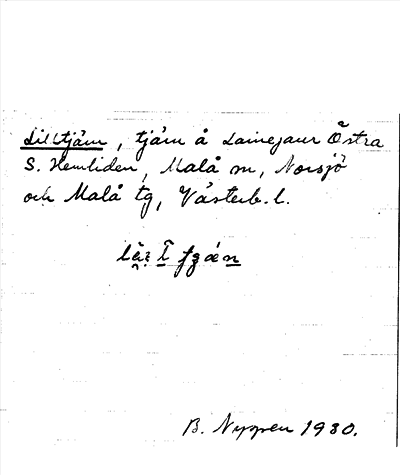 Lilltjärn, tjärn å Lainejaur Östra
S. Hemliden, Malå sn, Norsjö
och Malå tg, Västerb. l.
B. Nygren 1930.